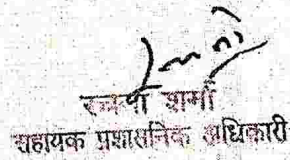 शर्मा
सहायक प्रशासनिक अधिकारी